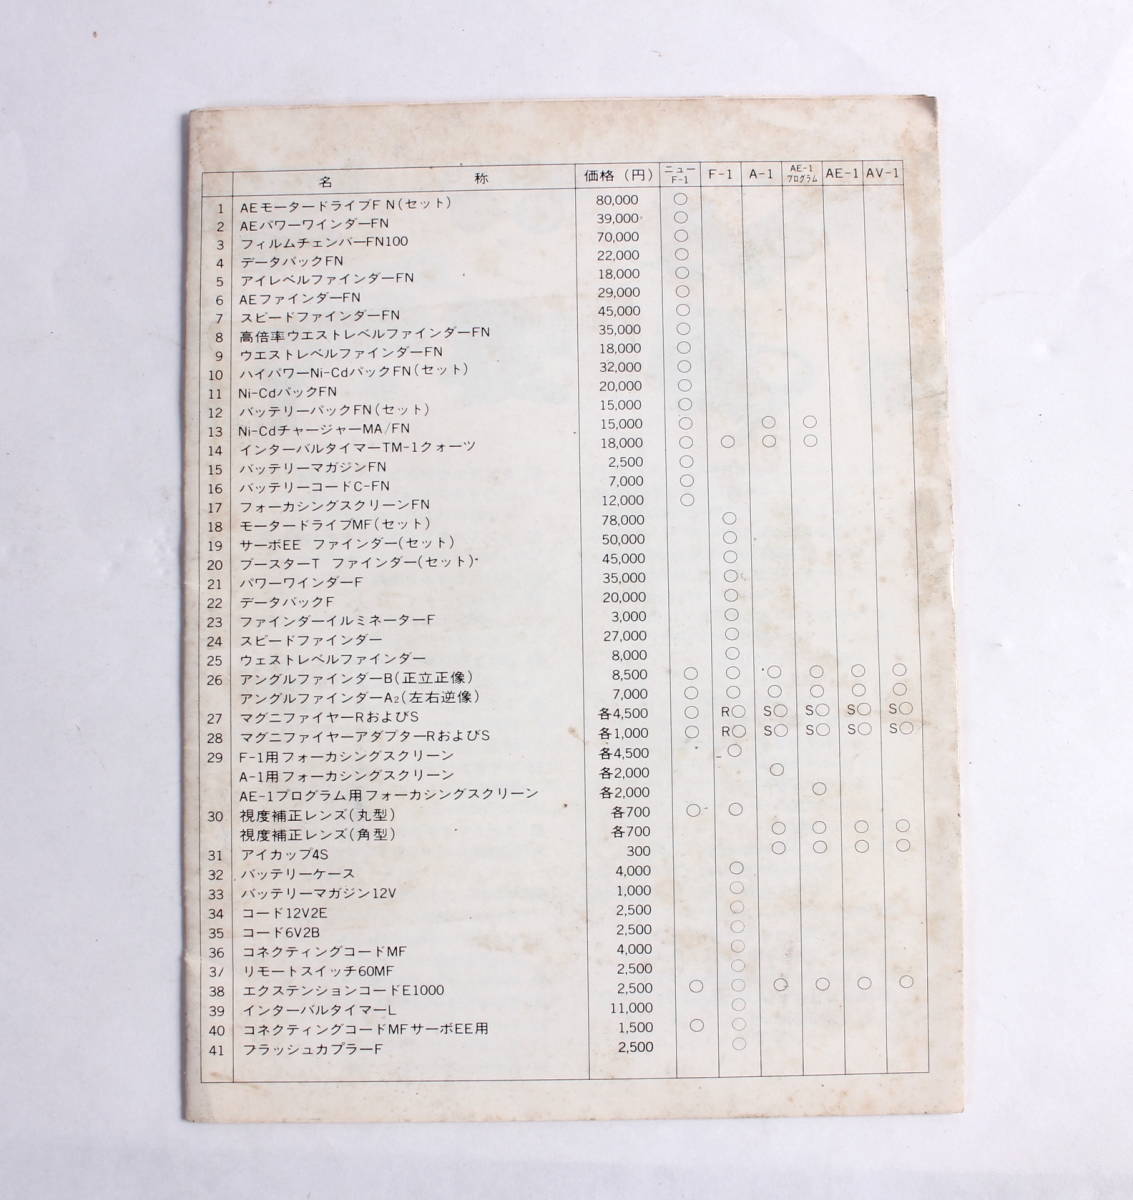 名 称 価格（円） ニューF-1 F-1 A-1 AE-1プログラム AE-1 AV-1
1 AEモータードライブFN（セット） 80,000 ○
2 AEパワーワインダーFN 39,000 ○
3 フィルムチェンバーFN100 70,000 ○
4 データバックFN 22,000 ○
5 アイレベルファインダーFN 18,000 ○
6 AEファインダーFN 29,000 ○
7 スピードファインダーFN 45,000 ○
8 高倍率ウエストレベルファインダーFN 35,000 ○
9 ウエストレベルファインダーFN 18,000 ○
10 ハイパワーNi-CdパックFN（セット） 32,000 ○
11 Ni-CdパックFN 20,000 ○
12 バッテリーパックFN（セット） 15,000 ○
13 Ni-CdチャージャーMA/FN 15,000 ○ ○ ○
14 インターバルタイマーTM-1クォーツ 18,000 ○ ○ ○ ○
15 バッテリーマガジンFN 2,500 ○
16 バッテリーコードC-FN 7,000 ○
17 フォーカシングスクリーンFN 12,000 ○
18 モータードライブMF（セット） 78,000 ○
19 サーボEE ファインダー（セット） 50,000 ○
20 ブースターT ファインダー（セット） 45,000 ○
21 パワーワインダーF 35,000 ○
22 データバックF 20,000 ○
23 ファインダーイルミネーターF 3,000 ○
24 スピードファインダー 27,000 ○
25 ウェストレベルファインダー 8,000 ○
26 アングルファインダーB（正立正像） 8,500 ○ ○ ○ ○ ○ ○
アングルファインダーA2（左右逆像） 7,000 ○ ○ ○ ○ ○ ○
27 マグニファイヤーRおよびS 各4,500 ○ R○ S○ S○ S○ S○
28 マグニファイヤーアダプターRおよびS 各1,000 ○ R○ S○ S○ S○ S○
29 F-1用フォーカシングスクリーン 各4,500 ○
A-1用フォーカシングスクリーン 各2,000 ○
AE-1プログラム用フォーカシングスクリーン 各2,000 ○
30 視度補正レンズ（丸型） 各700 ○ ○
視度補正レンズ（角型） 各700 ○ ○ ○ ○
31 アイカップ4S 300 ○ ○ ○ ○
32 バッテリーケース 4,000 ○
33 バッテリーマガジン12V 1,000 ○
34 コード12V2E 2,500 ○
35 コード6V2B 2,500 ○
36 コネクティングコードMF 4,000 ○
37 リモートスイッチ60MF 2,500 ○
38 エクステンションコードE1000 2,500 ○ ○ ○ ○ ○ ○
39 インターバルタイマーL 11,000 ○
40 コネクティングコードMFサーボEE用 1,500 ○ ○
41 フラッシュカプラーF 2,500 ○